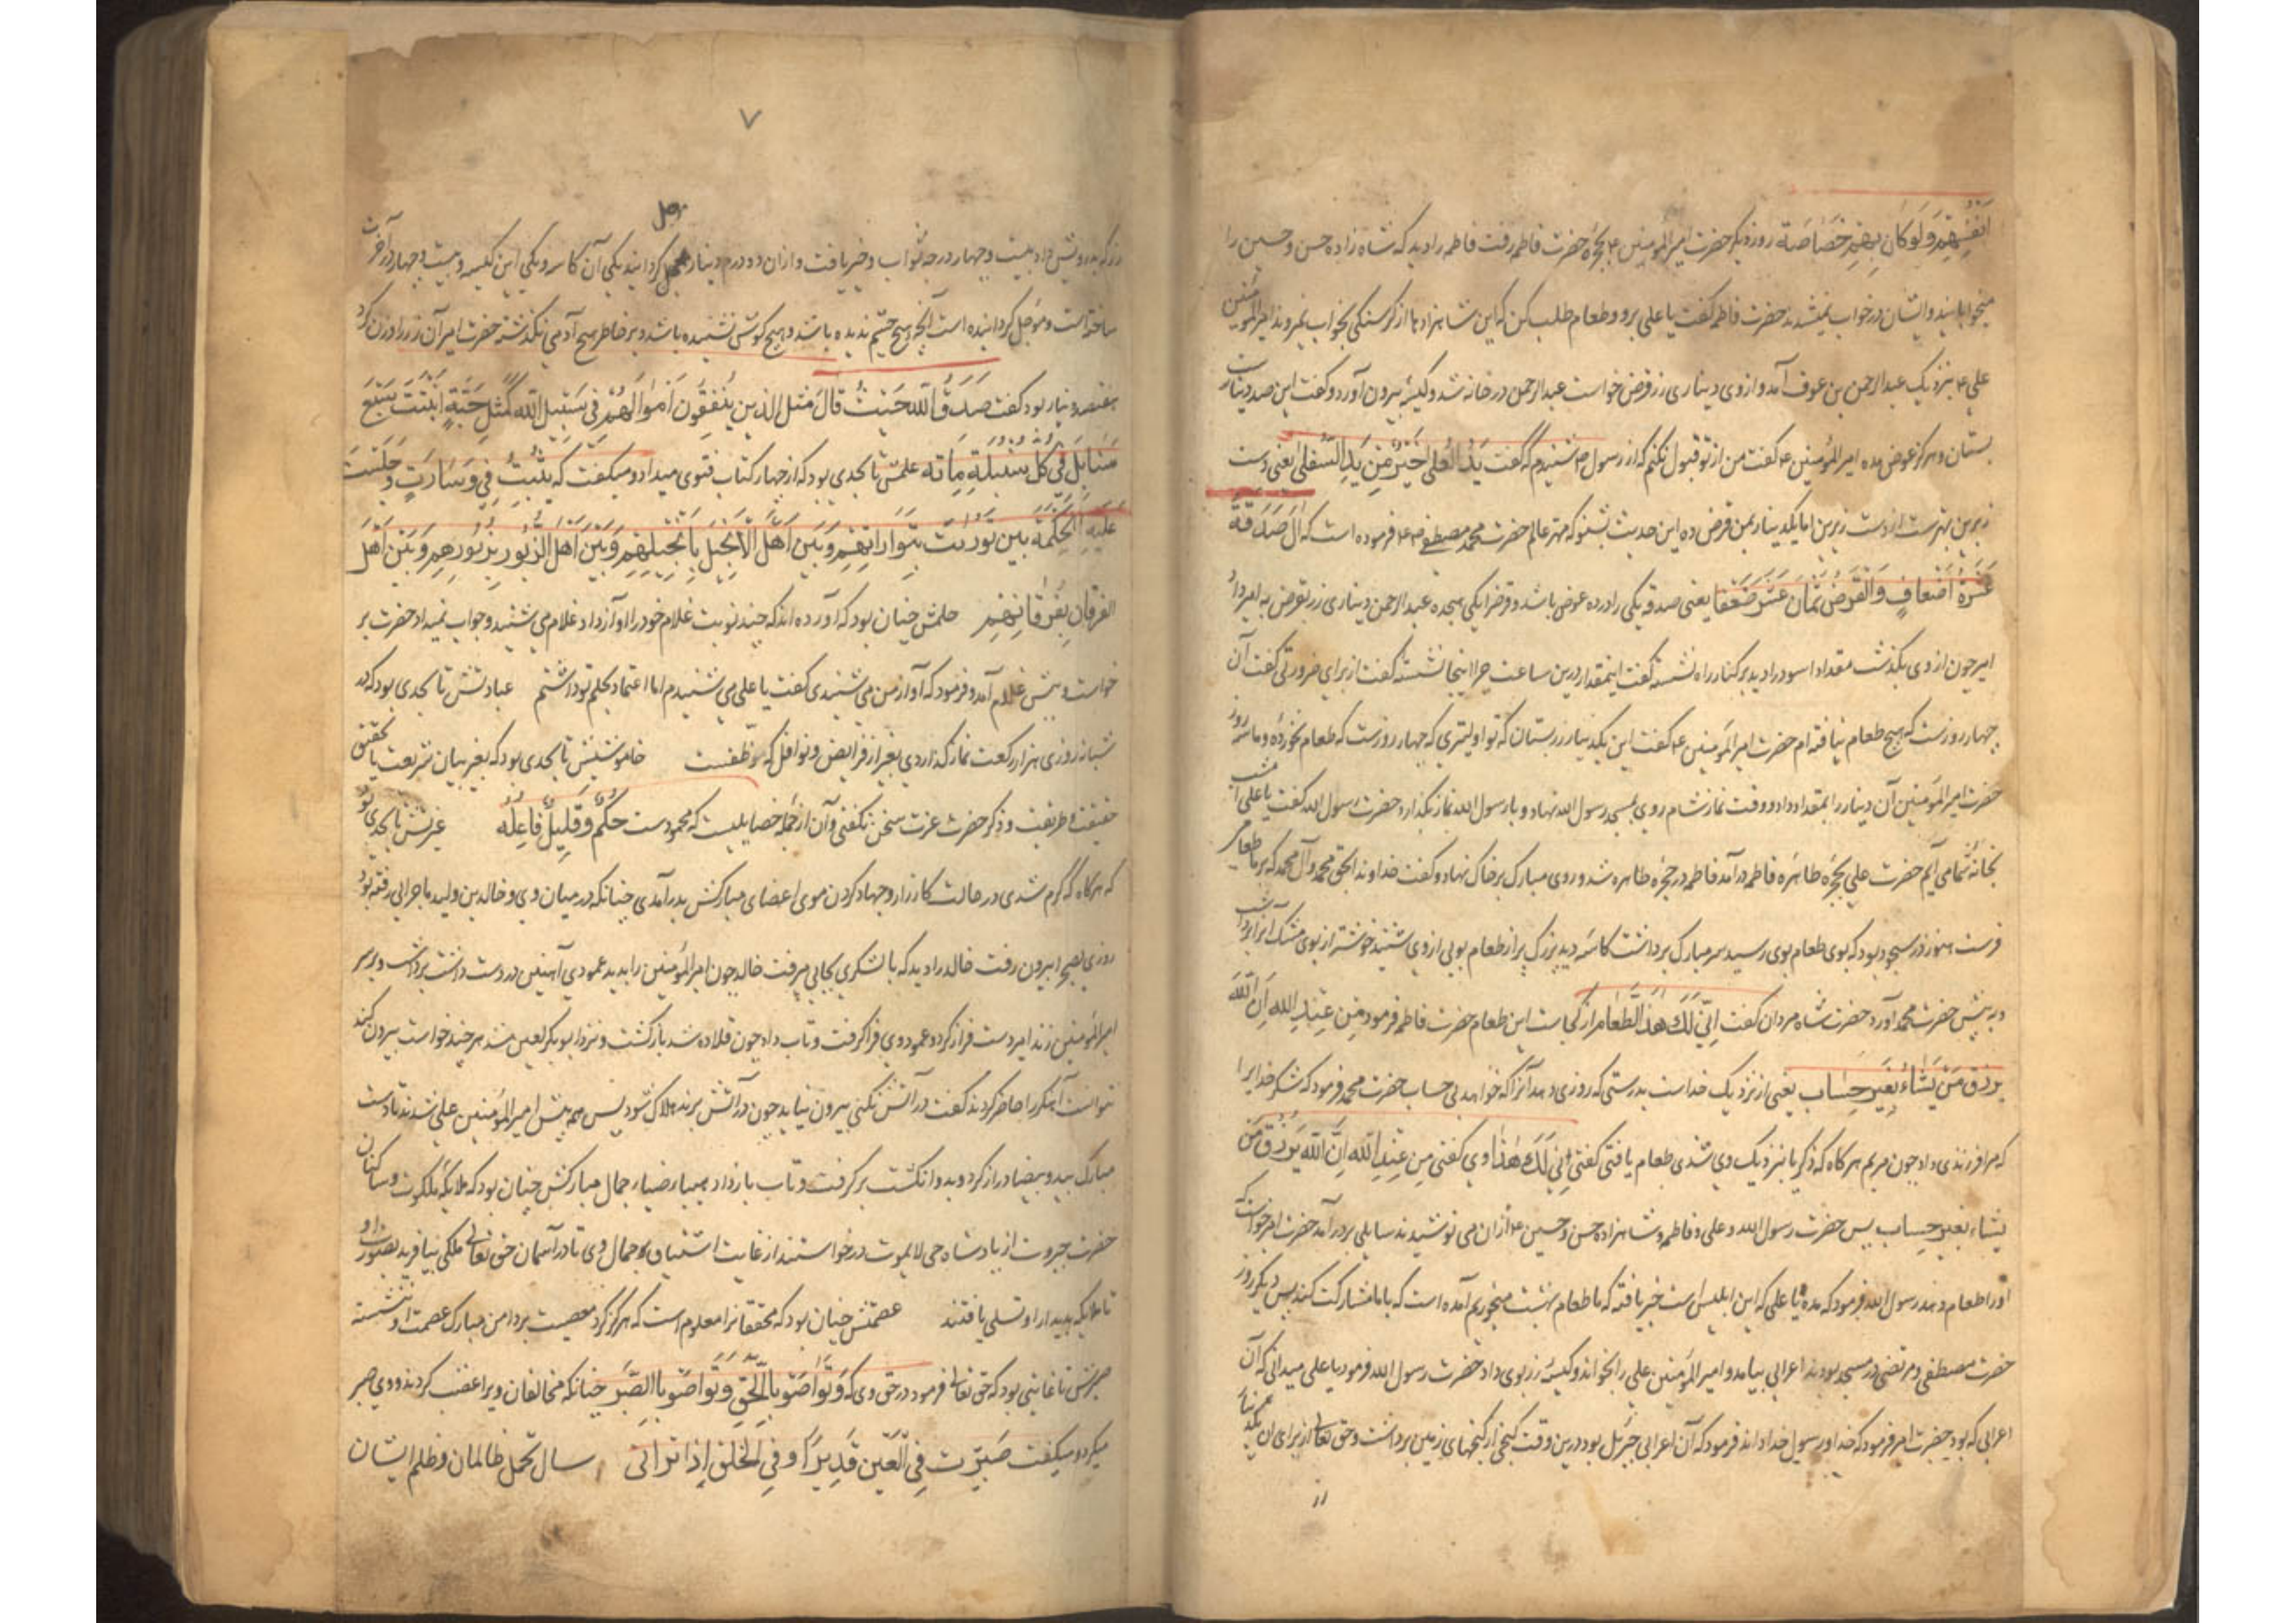 اَنْفُسِهِمْ وَلَوْ كَانَ بِهِمْ خَصَاصَة روزی دیکر حضرت امیرالمؤمنین ع بحجرهٔ حضرت فاطمه رفت فاطمه را دید که شاه زاده حسن و حسین را
میخوابانید و ایشان در خواب نمیشدند حضرت فاطمه کفت یا علی برو و طعام طلب کن که این شاهزادها از کرسنکی بخواب نمیروند امیرالمؤمنین
علی ع بنزدیک عبدالرحمن بن عوف آمد و از وی دیناری زر قرض خواست عبدالرحمن در خانه شد و کیسهٔ بیرون آورد و کفت این صد دینارت
بستان و هرکز عوض مده امیرالمؤمنین ع کفت من از تو قبول نکنم که از رسول ص شنیدم که کفت یَدُ الْعُلیٰ خَیْرٌ مِنْ یَدِ السُّفلیٰ یعنی دست
زبرین بهترست از دست زیرین اما یکدینار بمن قرض ده این حدیث بشنو که مهتر عالم حضرت محمد مصطفی ص فرموده است که اَلصَدَقَةُ
عَشَرَةُ اَضْعافٍ وَالْقَرْضُ ثَمَانَ عَشَرَ ضَعْفًا یعنی صدقه یکی را در ده عوض باشد و قرض را یکی بهجده عبدالرحمن دیناری زر بقرض به امیر داد
امیر چون از وی بکذشت مقداد اسود را دید بر کنار راه نشسته کفت ای مقداد درین ساعت چرا اینجا نشستهٔ کفت از برای ضرورتی کفت آن
چهار روزست که هیچ طعام نیافته ام حضرت امیرالمؤمنین ع کفت این یکدینار زر بستان که تو اولیتری که چهار روزست که طعام نخوردهٔ و ما سه روز
حضرت امیرالمؤمنین آن دینار را بمقداد داد و وقت نماز شام روی بمسجد رسول الله نهاد و با رسول الله نماز بکذارد حضرت رسول الله کفت یا علی امشب
بخانهٔ شما می آیم حضرت علی بحجرهٔ طاهره فاطمه درآمد فاطمه در حجرهٔ طاهره شد و روی مبارک بر خاک نهاد و کفت خداوندا بحق محمد و آل محمد که برما طعام
فرست هنوز در سجود بود که بوی طعام بوی رسید سر مبارک برداشت کاسهٔ دید بزرک پر از طعام بویی از وی شنید خوشتر از بوی مشک آنرا برداشت
و به پیش حضرت محمد آورد حضرت شاه مردان کفت اَنّیٰ لَکِ هٰذَا الطَّعامُ از کجاست این طعام حضرت فاطمه فرمود مِنْ عِنْدِ اللهِ اِنَّ اللهَ
یَرْزُقُ مَنْ یَشَاءُ بِغَیْرِ حِسَاب یعنی از نزدیک خداست بدرستی که روزی دهد آنرا که خواهد بی حساب حضرت محمد فرمود که شکر خدایرا
که مرا فرزندی داد چون مریم هرکاه که زکریا بنزدیک وی شدی طعام یافتی کفتی اَنّیٰ لَکِ هٰذَا وی کفتی مِنْ عِنْدِ اللهِ اِنَّ اللهَ یَرْزُقُ مَنْ
یَشَاء بِغَیْرِ حِسَاب پس حضرت رسول الله و علی و فاطمه و شاهزاده حسن و حسین ع از آن می نوشیدند سایلی بر در آمد حضرت امیر خواست که
او را طعام دهد رسول الله فرمود که مده یا علی که این ابلیس است خبر یافته که ما طعام بهشت میخوریم آمده است که با ما مشارکت کند پس دیکر روز
حضرت مصطفی و مرتضی در مسجد بودند اعرابی بیامد و امیرالمؤمنین علی را بخواند و کیسهٔ زر بوی داد حضرت رسول الله فرمود یا علی میدانی که آن
اعرابی که بود حضرت امیر فرمود که خدا و رسول خدا داند فرمود که آن اعرابی جبرئیل بود درین وقت کنجی از کنجهای زمین برداشت و حق تعالی از برای آن یکدینار
۷
زر که بدرویش داد بیست و چهار درجه ثواب و خیر یافت و از آن دو درم دینار معجل کردانید یکی آن کاسه و یکی این کیسه و بیست و چهار در آخرت
ساخته است و مؤجل کردانیده است آنچه هیچ چشم ندیده باشد و هیچ کوش نشنیده باشد و بر خاطر هیچ آدمی نکذشته حضرت امیر آن زر را وزن کرد
هفتصد دینار بود کفت صَدَقَ اللهُ حَیْثُ قَالَ مَثَلُ الَّذِینَ یُنْفِقُونَ اَمْوَالَهُمْ فِی سَبِیلِ اللهِ کَمَثَلِ حَبَّةٍ اَنْبَتَتْ سَبْعَ
سَنَابِلَ فِی کُلِّ سُنْبُلَةٍ مِائَة علمش تا بحدی بود که از چهار کتاب فتوی میداد و میکفت که
علیه الحکمة بین تورات بتوراتهم وَبَیْنَ اَهْلِ الْاِنْجِیلِ بِاِنْجِیلِهِمْ وَبَیْنَ اَهْلِ الزَّبُورِ بِزَبُورِهِمْ وَبَیْنَ اَهْلِ
الفرقانِ بِفُرْقَانِهِمْ حلمش چنان بود که آورده اند که چند نوبت غلام خود را آواز داد غلام می شنید و جواب نمیداد حضرت بر
خواست و پیش غلام آمد و فرمود که آواز من می شنیدی کفت یا علی می شنیدم اما اعتماد بحلم تو داشتم عبادتش تا بحدی بود که در
شبانه روزی هزار رکعت نماز کذاردی بغیر از فرایض و نوافل که موظفست خاموشیش تا بحدی بود که بغیر بیان شریعت یا تحقیق
حقیقت و طریقت و ذکر حضرت عزت سخن نکفتی و آن از جمله خصایلیست که محمودست حُکْمٌ وَقَلِیلٌ فَاعِلُهُ غیرتش تا بحدی بود
که هرکاه که کرم شدی در حالت کارزار و جهاد کردن موی اعضای مبارکش بدر آمدی چنانکه در میان وی و خالد بن ولید ماجرایی رفته بود
روزی بصحرا بیرون رفت خالد را دید که با لشکری بجایی میرفت خالد چون امیرالمؤمنین را بدید عمودی آهنین در دست داشت برداشت و بر سر
امیرالمؤمنین زند امیر دست فراز کرد و عمود وی فرا کرفت و تاب داد چون قلاده شد بازکشت و نزد ابوبکر لعین شد هرچند خواست بیرون کند
نتوانست آهنکر را حاضر کردند کفت در آتش نکنی بیرون نیاید چون در آتش برند هلاک شود پس هم پیش امیرالمؤمنین علی شدند تا دست
مبارک ید و بیضا دراز کرد و بدو انکشت برکرفت و تاب باز داد جمال مبارکش چنان بود که ملائکه ملکوت و ساکنان
حضرت جبروت از پادشاه حی لایموت درخواستند از غایت اشتیاق جمال وی تا در آسمان حق تعالی ملکی بیافرید بصورت او
تا ملایکه بدیدار او تسلی یافتند عصمتش چنان بود که محققانرا معلوم است که هرکز کرد معصیت بر دامن مبارک عصمت او ننشسته
صبرش تا غایتی بود که حق تعالی فرمود در حق وی که وَتَوَاصَوْا بِالْحَقِّ وَتَوَاصَوْا بِالصَّبْرِ چنانکه مخالفان ویرا غضب کردند و وی صبر
میکرد و میکفت صَبَرْتُ فِی الْعَیْنِ سال تحمل ظالمان و ظلم ایشان